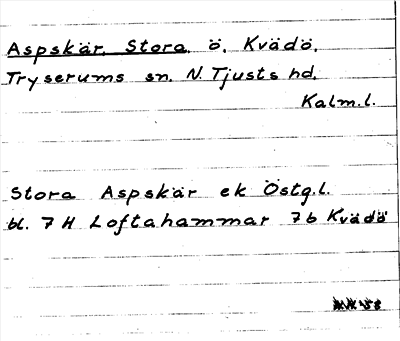 Aspskär, Stora, ö, Kvädö,
Tryserums sn. N. Tjusts hd.
Kalm.l.
Stora Aspskär ek Östg.l.
bl. 7 H Loftahammar 7b Kvädö